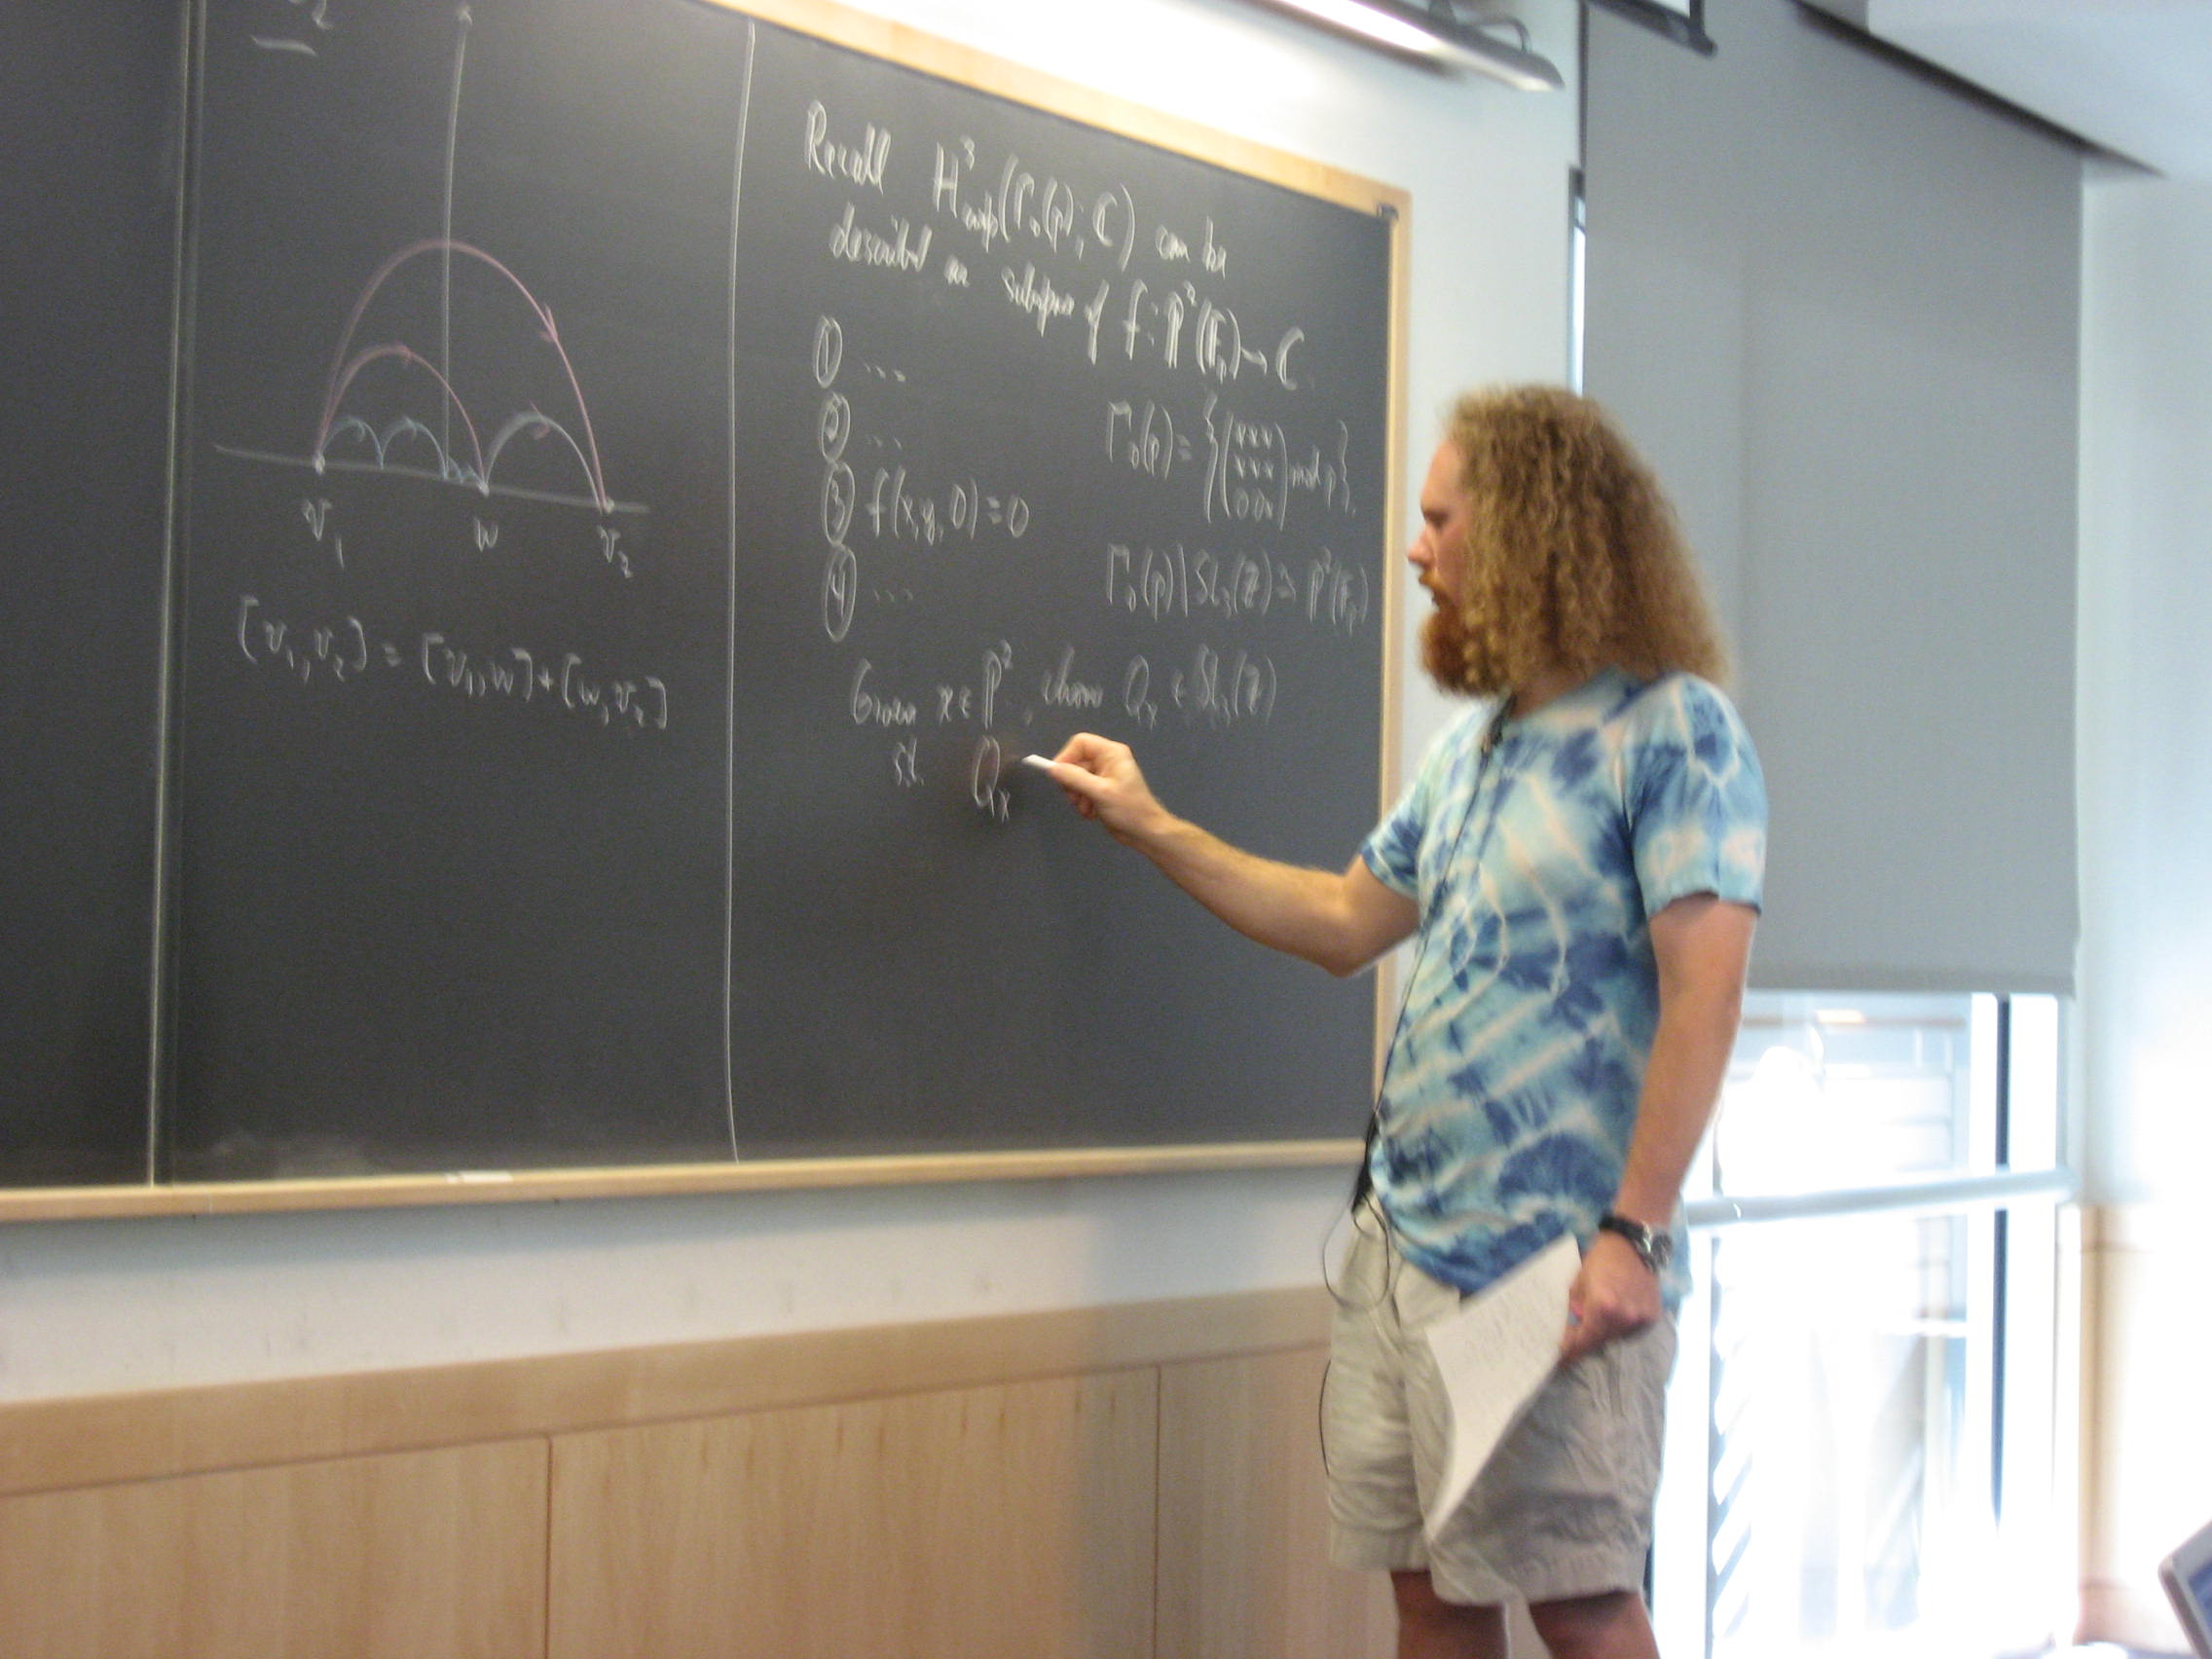 v₁ w v₂
[v₁, v₂] = [v₁, w] + [w, v₂]
Recall H³cusp(Γ₀(p); ℂ) can be
described as subspace of f: ℙ²(𝔽ₚ) → ℂ
① ...
② ...
③ f(x, y, 0) = 0
④ ...
Γ₀(p) = {(* * * / * * * / 0 0 *) mod p}.
Γ₀(p) \ SL₃(ℤ) ≅ ℙ²(𝔽ₚ)
Given x ∈ ℙ², choose Qₓ ∈ SL₃(ℤ)
st. Qₓ